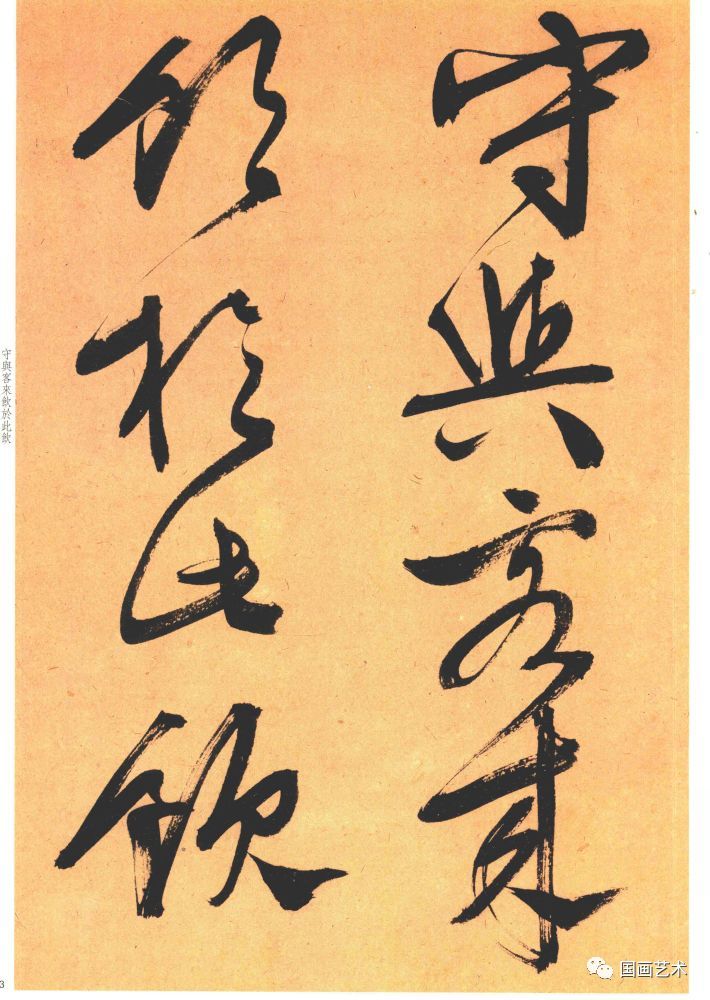 守與客來
飲於此飲
守與客來飲於此飲
3
国画艺术